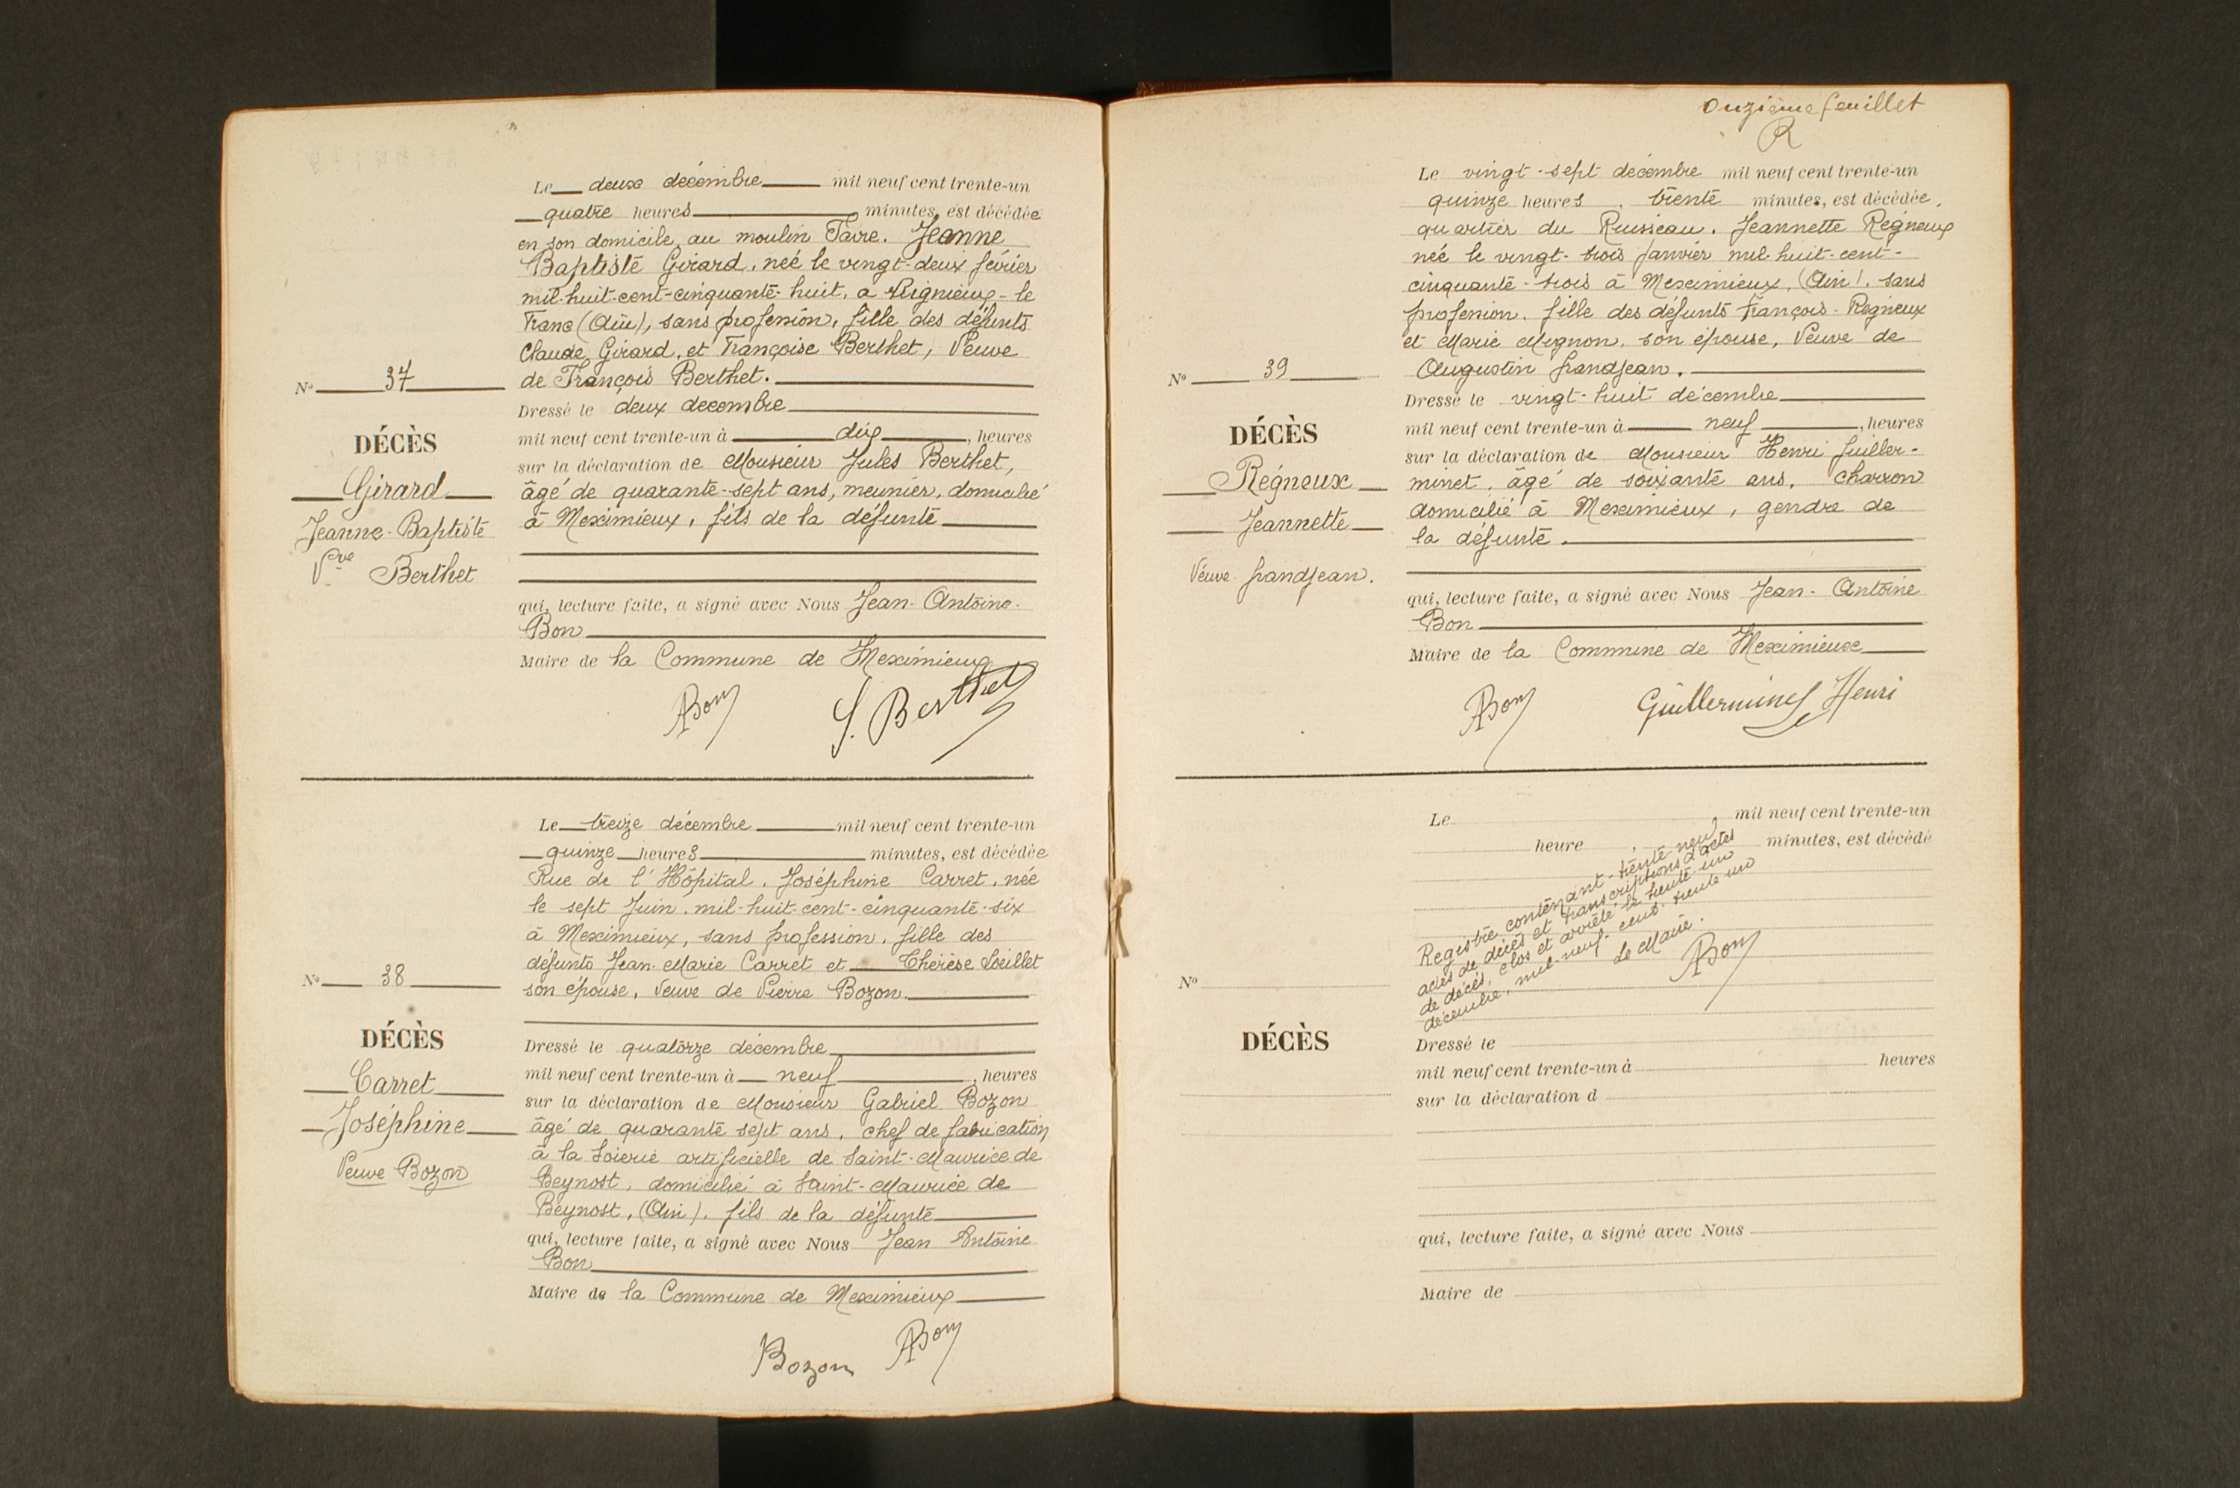 Le deux décembre mil neuf cent trente-un
quatre heures minutes, est décédée
en son domicile, au moulin Favre. Jeanne
Baptiste Girard, née le vingt-deux février
mil-huit-cent-cinquante-huit, à Rignieux-le
Franc (Ain), sans profession, fille des défunts
Claude Girard, et Françoise Berthet, Veuve
de François Berthet.
Dressé le deux décembre
mil neuf cent trente-un à dix, heures
sur la déclaration de Monsieur Jules Berthet,
âgé de quarante-sept ans, meunier, domicilié
à Meximieux, fils de la défunte
qui, lecture faite, a signé avec Nous Jean-Antoine-
Bon
Maire de la Commune de Meximieux
ABon J. Berthet
No 37
DÉCÈS
Girard
Jeanne-Baptiste
Vve Berthet
Le treize décembre mil neuf cent trente-un
quinze heures minutes, est décédée
Rue de l'Hôpital, Joséphine Carret, née
le sept Juin, mil-huit-cent-cinquante-six
à Meximieux, sans profession, fille des
défunts Jean-Marie Carret et Thérèse Loeillet
son épouse, Veuve de Pierre Bozon.
Dressé le quatorze décembre
mil neuf cent trente-un à neuf, heures
sur la déclaration de Monsieur Gabriel Bozon
âgé de quarante sept ans, chef de fabrication
à la Soierie artificielle de Saint-Maurice de
Beynost, domicilié à Saint-Maurice de
Beynost, (Ain), fils de la défunte
qui, lecture faite, a signé avec Nous Jean Antoine
Bon
Maire de la Commune de Meximieux
Bozon ABon
No 38
DÉCÈS
Carret
Joséphine
Veuve Bozon
Onzième feuillet
R
Le vingt-sept décembre mil neuf cent trente-un
quinze heures, trente minutes, est décédée,
quartier du Ruisseau, Jeannette Régneux
née le vingt-trois Janvier mil-huit-cent-
cinquante-trois à Meximieux, (Ain), sans
profession, fille des défunts François-Regneux
et Marie Mignon, son épouse, Veuve de
Augustin Grandjean.
Dressé le vingt-huit décembre
mil neuf cent trente-un à neuf, heures
sur la déclaration de Monsieur Henri Guiller-
minet, âgé de soixante ans, charron
domicilié à Meximieux, gendre de
la défunte.
qui, lecture faite, a signé avec Nous Jean-Antoine
Bon
Maire de la Commune de Meximieux
ABon Guillerminet Henri
No 39
DÉCÈS
Régneux
Jeannette
Veuve Grandjean.
Le mil neuf cent trente-un
heure , minutes, est décédé
Registre contenant trente-neuf
actes de décès et transcriptions d'actes
de décès, clos et arrêté le trente-un
décembre, mil-neuf-cent-trente-un
Le Maire.
ABon
No
DÉCÈS
Dressé le
mil neuf cent trente-un à heures
sur la déclaration d
qui, lecture faite, a signé avec Nous
Maire de